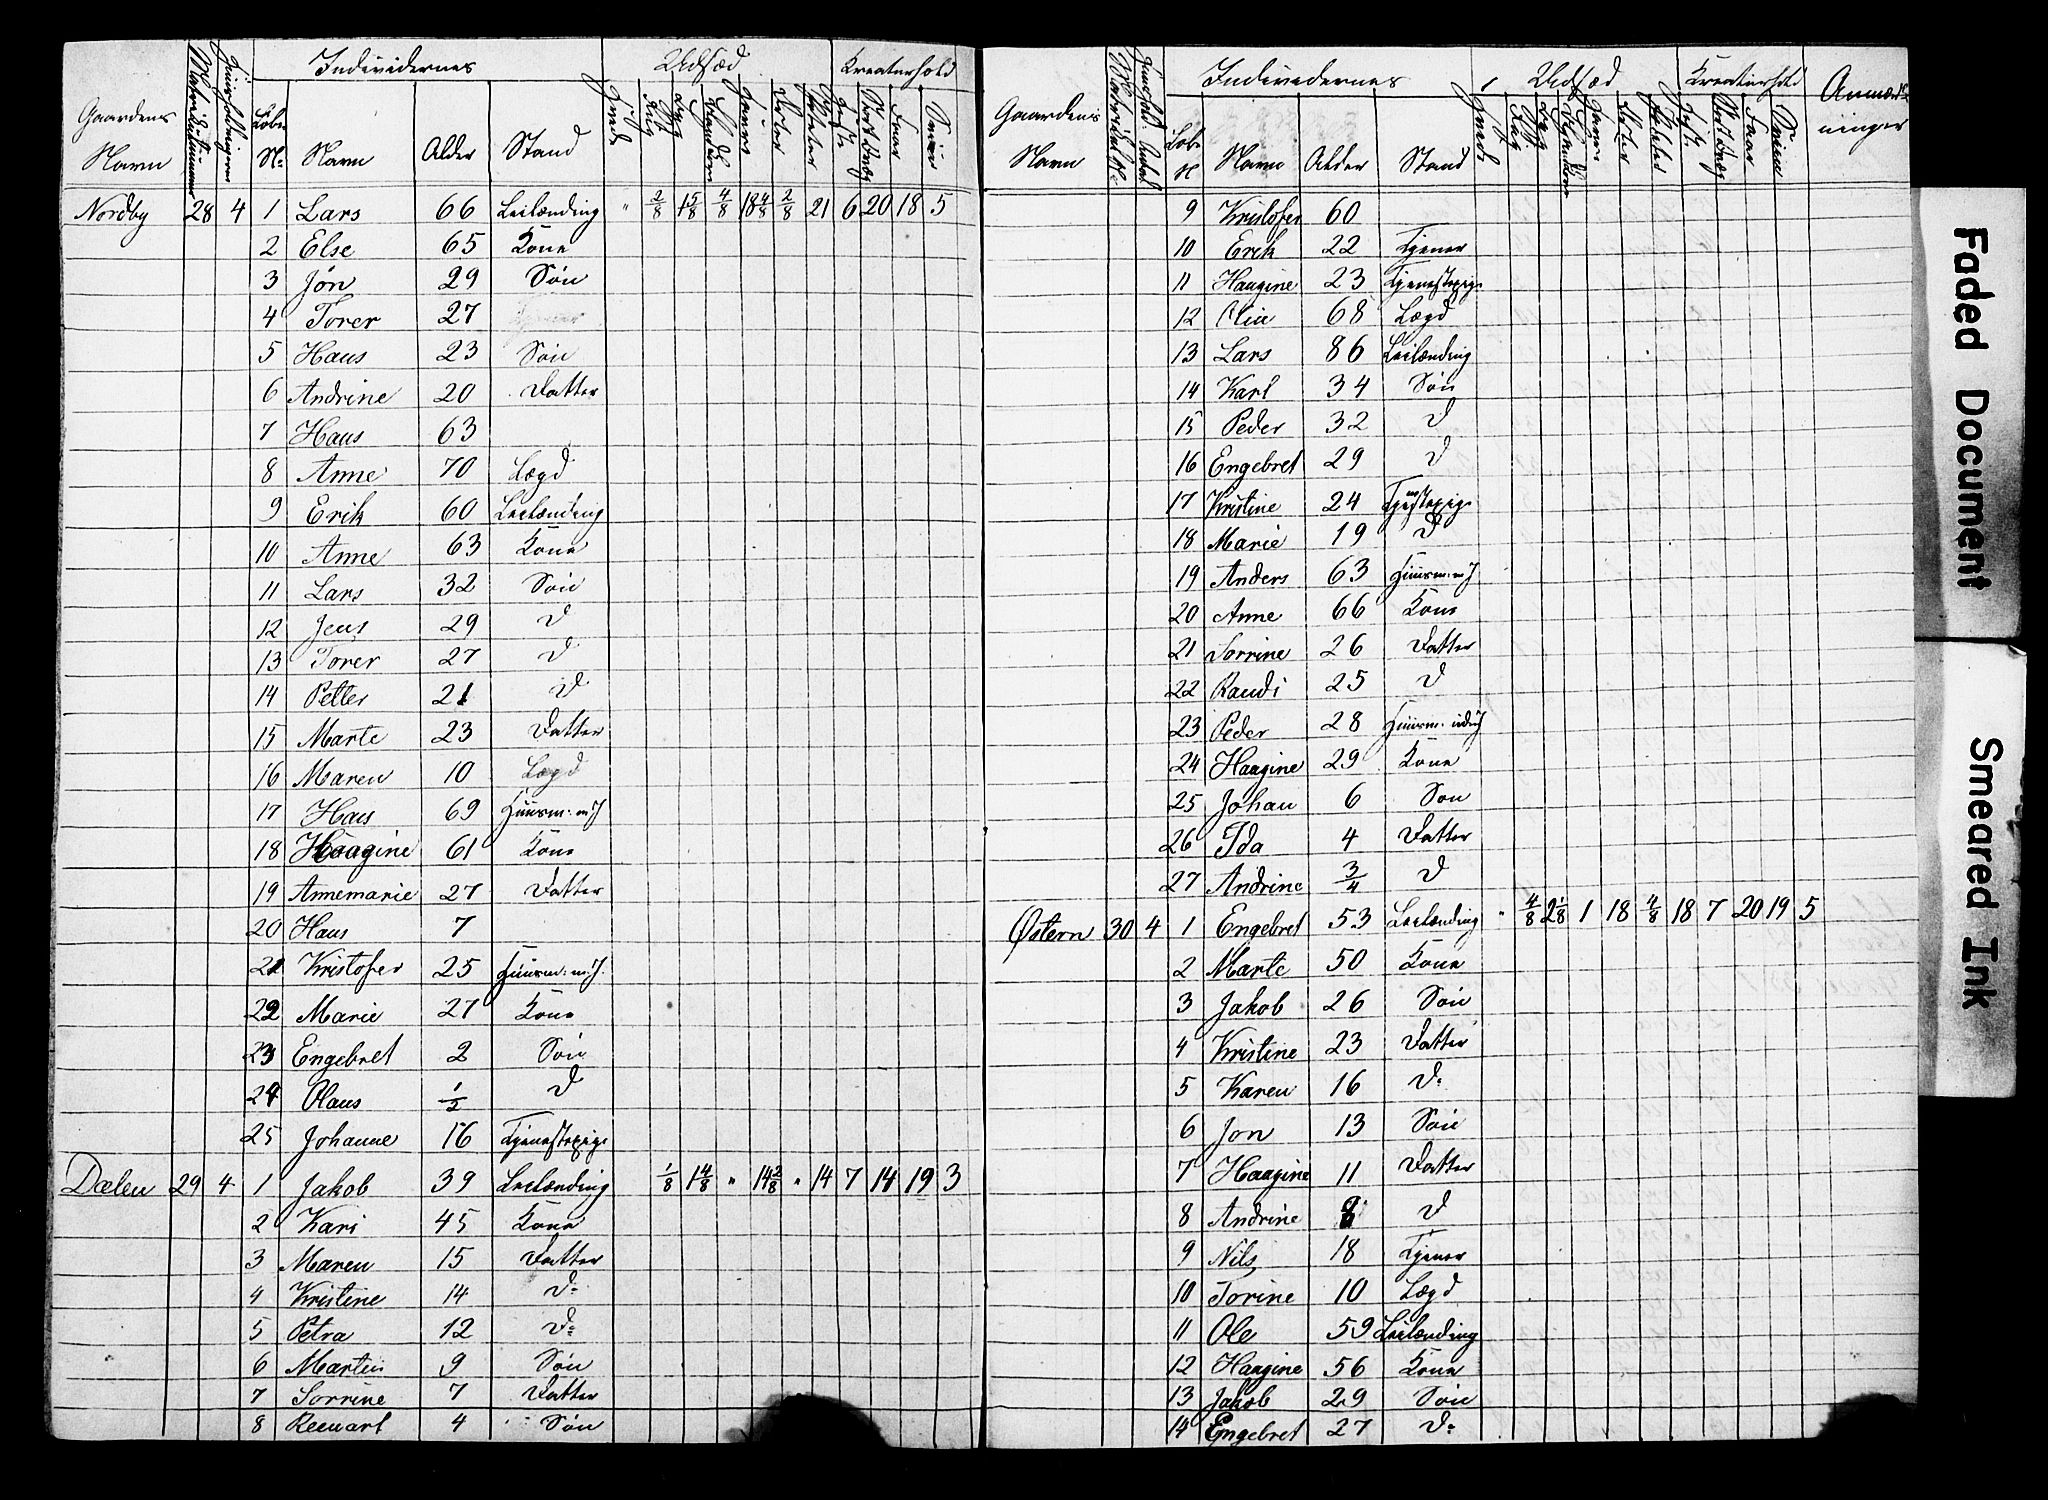 Individernes Udsæd Kreaturhold
Gaardens Navn Matrikulnummer Løbe N: Navn Alder Stand Hvede Rug Byg Blandkorn Havre Erter Poteter Heste Stort Qvæg Faar Sviin
Nordby 28 4 1 Lars 66 Leilænding " 2/8 1 5/8 4/8 18 4/8 2/8 21 6 20 18 5
2 Else 65 Kone
3 Jon 29 Søn
4 Torer 27
5 Hans 23 Søn
6 Andrine 20 Datter
7 Hans 63
8 Anne 70 Lægd
9 Erik 60 Leilænding
10 Anne 63 Kone
11 Lars 32 Søn
12 Jens 29 D
13 Torer 27 D
14 Petter 21 D
15 Marte 23 Datter
16 Maren 10 Lægd
17 Hans 69 Huusm: m/J
18 Haagine 61 Kone
19 Annemarie 27 Datter
20 Hans 7
21 Kristofer 25 Huusm: m/J.
22 Marie 27 Kone
23 Engebret 2 Søn
24 Olaus 1/2 D
25 Johanne 16 Tjenestepige
Dælen 29 4 1 Jakob 39 Leilænding 1/8 1 4/8 " 14 2/8 " 14 7 14 19 3
2 Kari 45 Kone
3 Maren 15 Datter
4 Kristine 14 D:
5 Petra 12 D:
6 Martin 9 Søn
7 Sorrine 7 Datter
8 Reenart 4 Søn
Individernes Udsæd Kreaturhold Anmærkninger
Gaardens Navn Matrikul No Løbe N Navn Alder Stand Hvede Rug Byg Blandkorn Havre Erter Poteter Heste Stort Qvæg Faar Sviin
9 Kristofer 60
10 Erik 22 Tjener
11 Haagine 23 Tjenestepige
12 Oline 68 Lægd
13 Lars 86 Leilænding
14 Karl 34 Søn
15 Peder 32 D
16 Engebret 29 D
17 Kristine 24 Tjenestepige
18 Marie 19 D
19 Anders 63 Huusm: m/J
20 Anne 66 Kone
21 Sorrine 26 Datter
22 Randi 25 D
23 Peder 28 Huusm: ud/J
24 Haagine 29 Kone
25 Johan 6 Søn
26 Ida 4 Datter
27 Andrine 3/4 D
Østern 30 4 1 Engebret 53 Leilænding " 4/8 2 1/8 1 18 4/8 18 7 20 19 5
2 Marte 50 Kone
3 Jakob 26 Søn
4 Kristine 23 Datter
5 Karen 16 D:
6 Jon 13 Søn
7 Haagine 11 Datter
8 Andrine 8 D
9 Nils 18 Tjener
10 Torine 10 Lægd
11 Ole 59 Leilænding
12 Haagine 56 Kone
13 Jakob 29 Søn
14 Engebret 27 D:
Faded Document
Smeared Ink